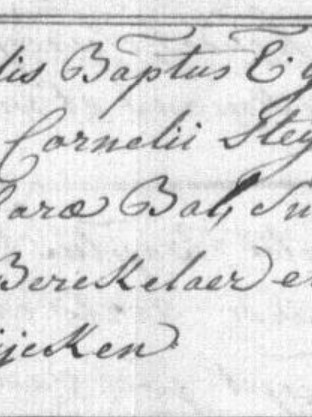 lis Baptus E
Cornelii Stey
Bal, Su
Berckelaer e
ijcken